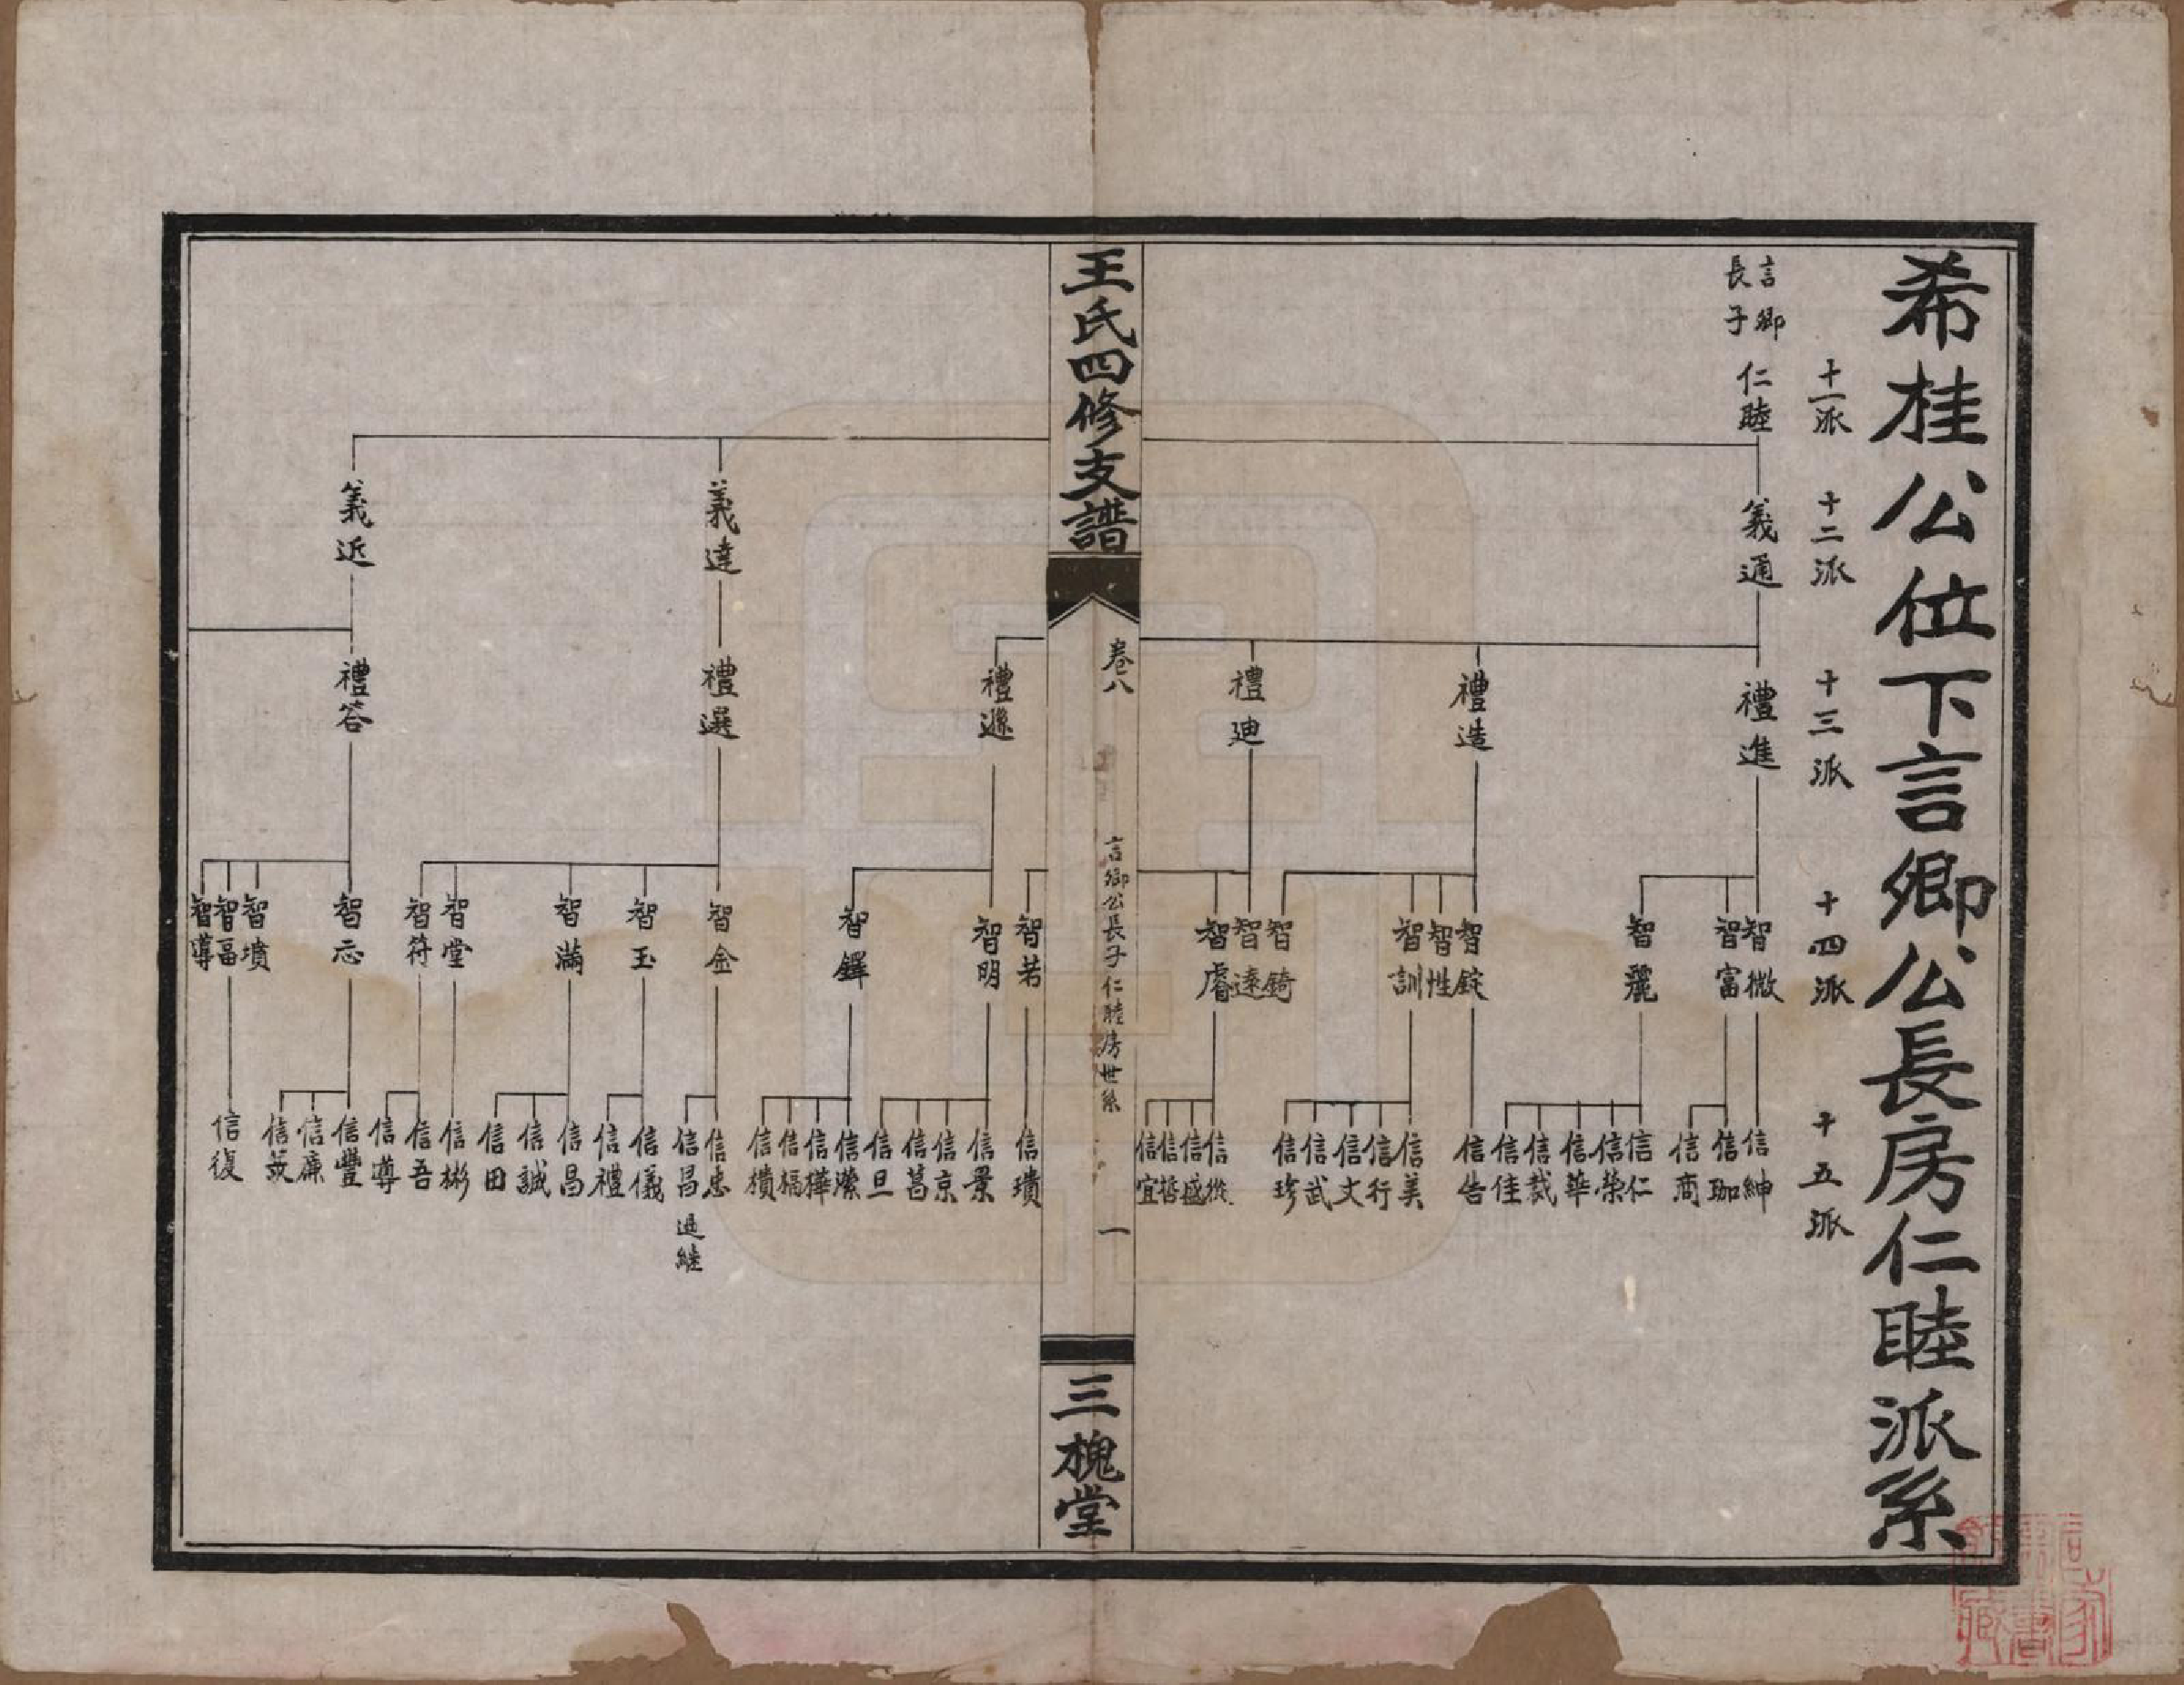 希桂公位下言卿公長房仁睦派系
十一派
十二派
十三派
十四派
十五派
言卿
長子
仁睦
義通
禮進
智微
信紳
智富
信珈
信商
智麗
信仁
信榮
信華
信裁
信佳
禮造
智錠
信告
智性
智訓
信美
信行
信文
信武
信珍
智錡
禮迪
智遠
智睿
信從
信盛
信哲
信宜
王氏四修支譜
卷八
言卿公長子仁睦房世系
一
三槐堂
智若
信璝
禮遜
智明
信景
信京
信菖
信旦
智鐸
信濚
信樺
信福
信樻
義達
禮選
智金
信忠
信昌
過繼
智玉
信儀
信禮
智滿
信昌
信誠
信田
智堂
信彬
智符
信吾
信尊
義近
禮答
智忘
信豐
信廉
信茂
智墳
智畐
信復
智導